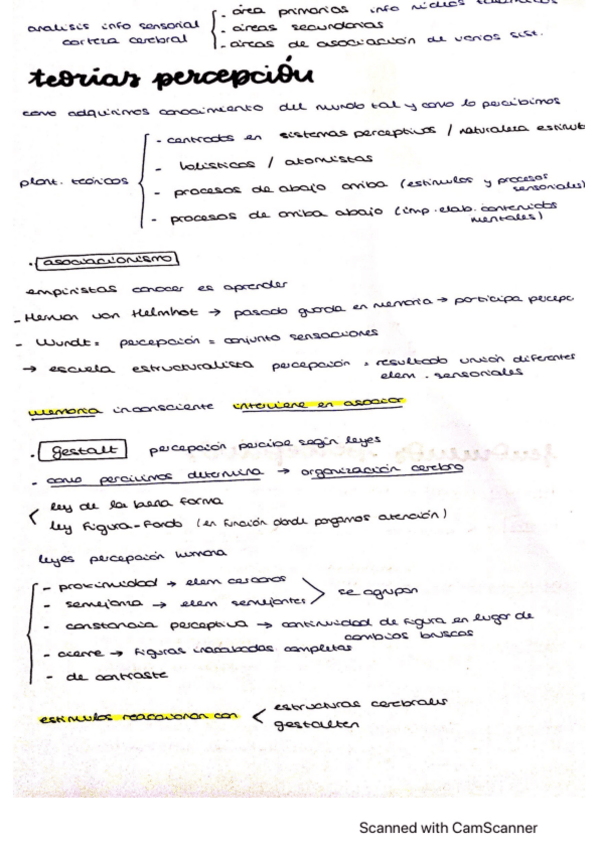 - área primarias info núcleos
analisis info sensorial
- áreas secundarias
corteza cerebral
- áreas de asociación de varios sist.
teorías percepción
como adquirimos conocimiento del mundo tal y como lo percibimos
- centrados en sistemas perceptivos / naturaleza estimul
- holísticos / atomistas
plant. teóricos
- procesos de abajo arriba (estímulos y procesos sensoriales)
- procesos de arriba abajo (imp. elab. contenidos mentales)
· asociacionismo
empiristas conocer es aprender
- Herman von Helmhot → pasado guarda en memoria → participa percepc
- Wundt = percepción = conjunto sensaciones
→ escuela estructuralista percepción = resultado unión diferentes elem. sensoriales
memoria inconsciente interviene en asociar
· gestalt percepción percibe según leyes
- como percibimos determina → organización cerebro
ley de la buena forma
ley Figura-Fondo (en función donde pongamos atención)
leyes percepción humana
- proximidad → elem cercanos
se agrupan
- semejanza → elem semejantes
- constancia perceptiva → continuidad de figura en lugar de cambios bruscos
- cierre → figuras inacabadas completas
- de contraste
estructuras cerebrales
estímulos reaccionan con
gestalten
Scanned with CamScanner